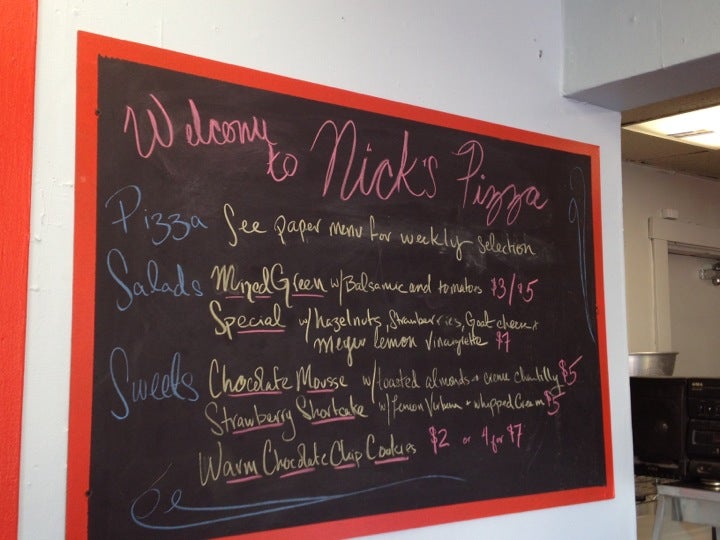 Welcome to Nick's Pizza
Pizza See paper menu for weekly selection
Salads Mixed Green w/Balsamic and tomatoes $3/$5
Special w/hazelnuts, Strawberries, Goat cheese +
meyer lemon vinaigrette $7
Sweets Chocolate Mousse w/toasted almonds + creme chantilly $5
Strawberry Shortcake w/Lemon Verbena + whipped Cream $5
Warm Chocolate Chip Cookies $2 or 4 for $7